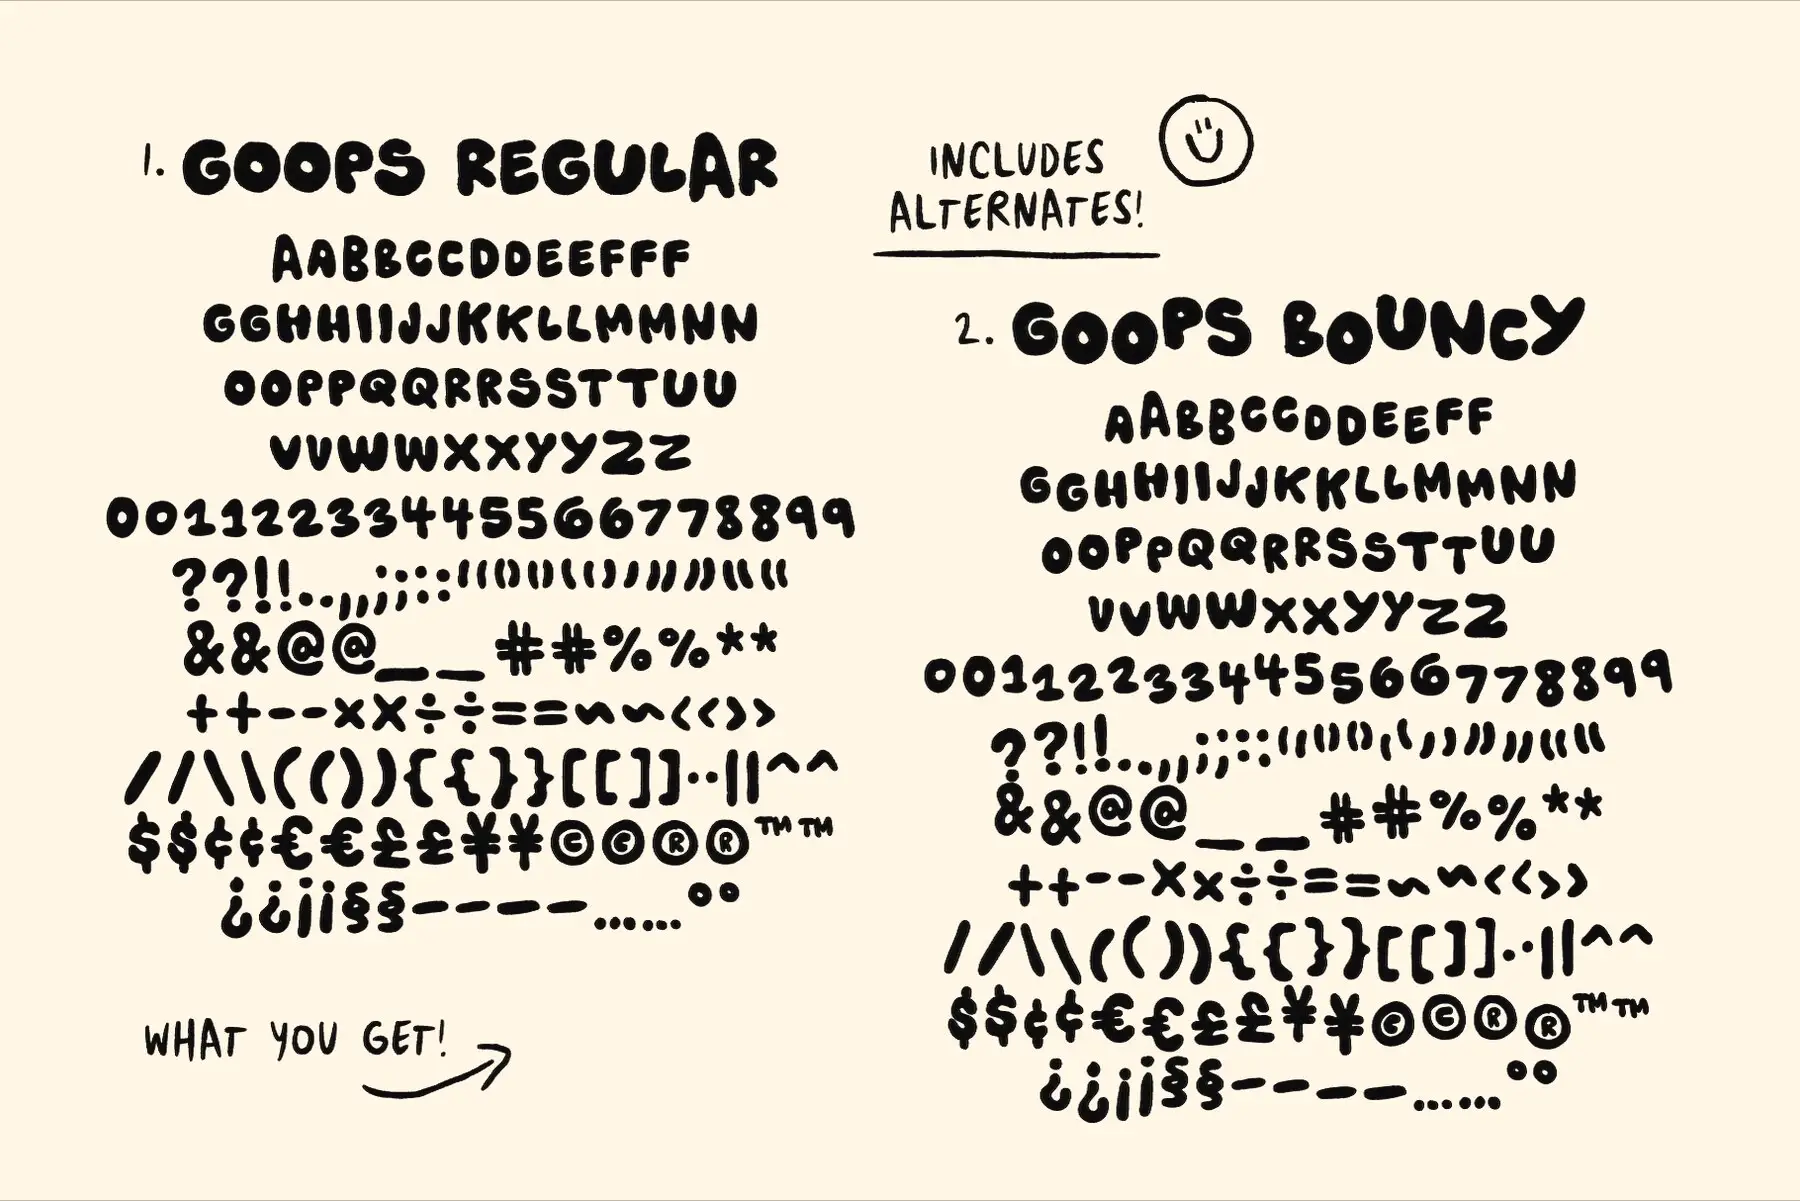 1. GOOPS REGULAR
AABBCCDDEEFFF
GGHHIIJJKKLLMMNN
OOPPQQRRSSTTUU
VVWWXXYYZZ
00112233445566778899
??!!..,,;;::''""‘‘““’’””
&&@@__##%%**
++--××÷÷==~~<<>>
//\\(())({{}}[[]]··||^^
$$¢¢€€££¥¥©©®®™™
¿¿¡¡§§––——……°°
INCLUDES
ALTERNATES!
2. GOOPS BOUNCY
AABBCCDDEEFF
GGHHIIJJKKLLMMNN
OOPPQQRRSSTTUU
VVWWXXYYZZ
00112233445566778899
&&@@__##%%**
++--××÷÷==~~<<>>
//\\(()){{}}[[]]··||^^
$$¢¢€€££¥¥©©®®™™
¿¿¡¡§§––——……°°
WHAT YOU GET!